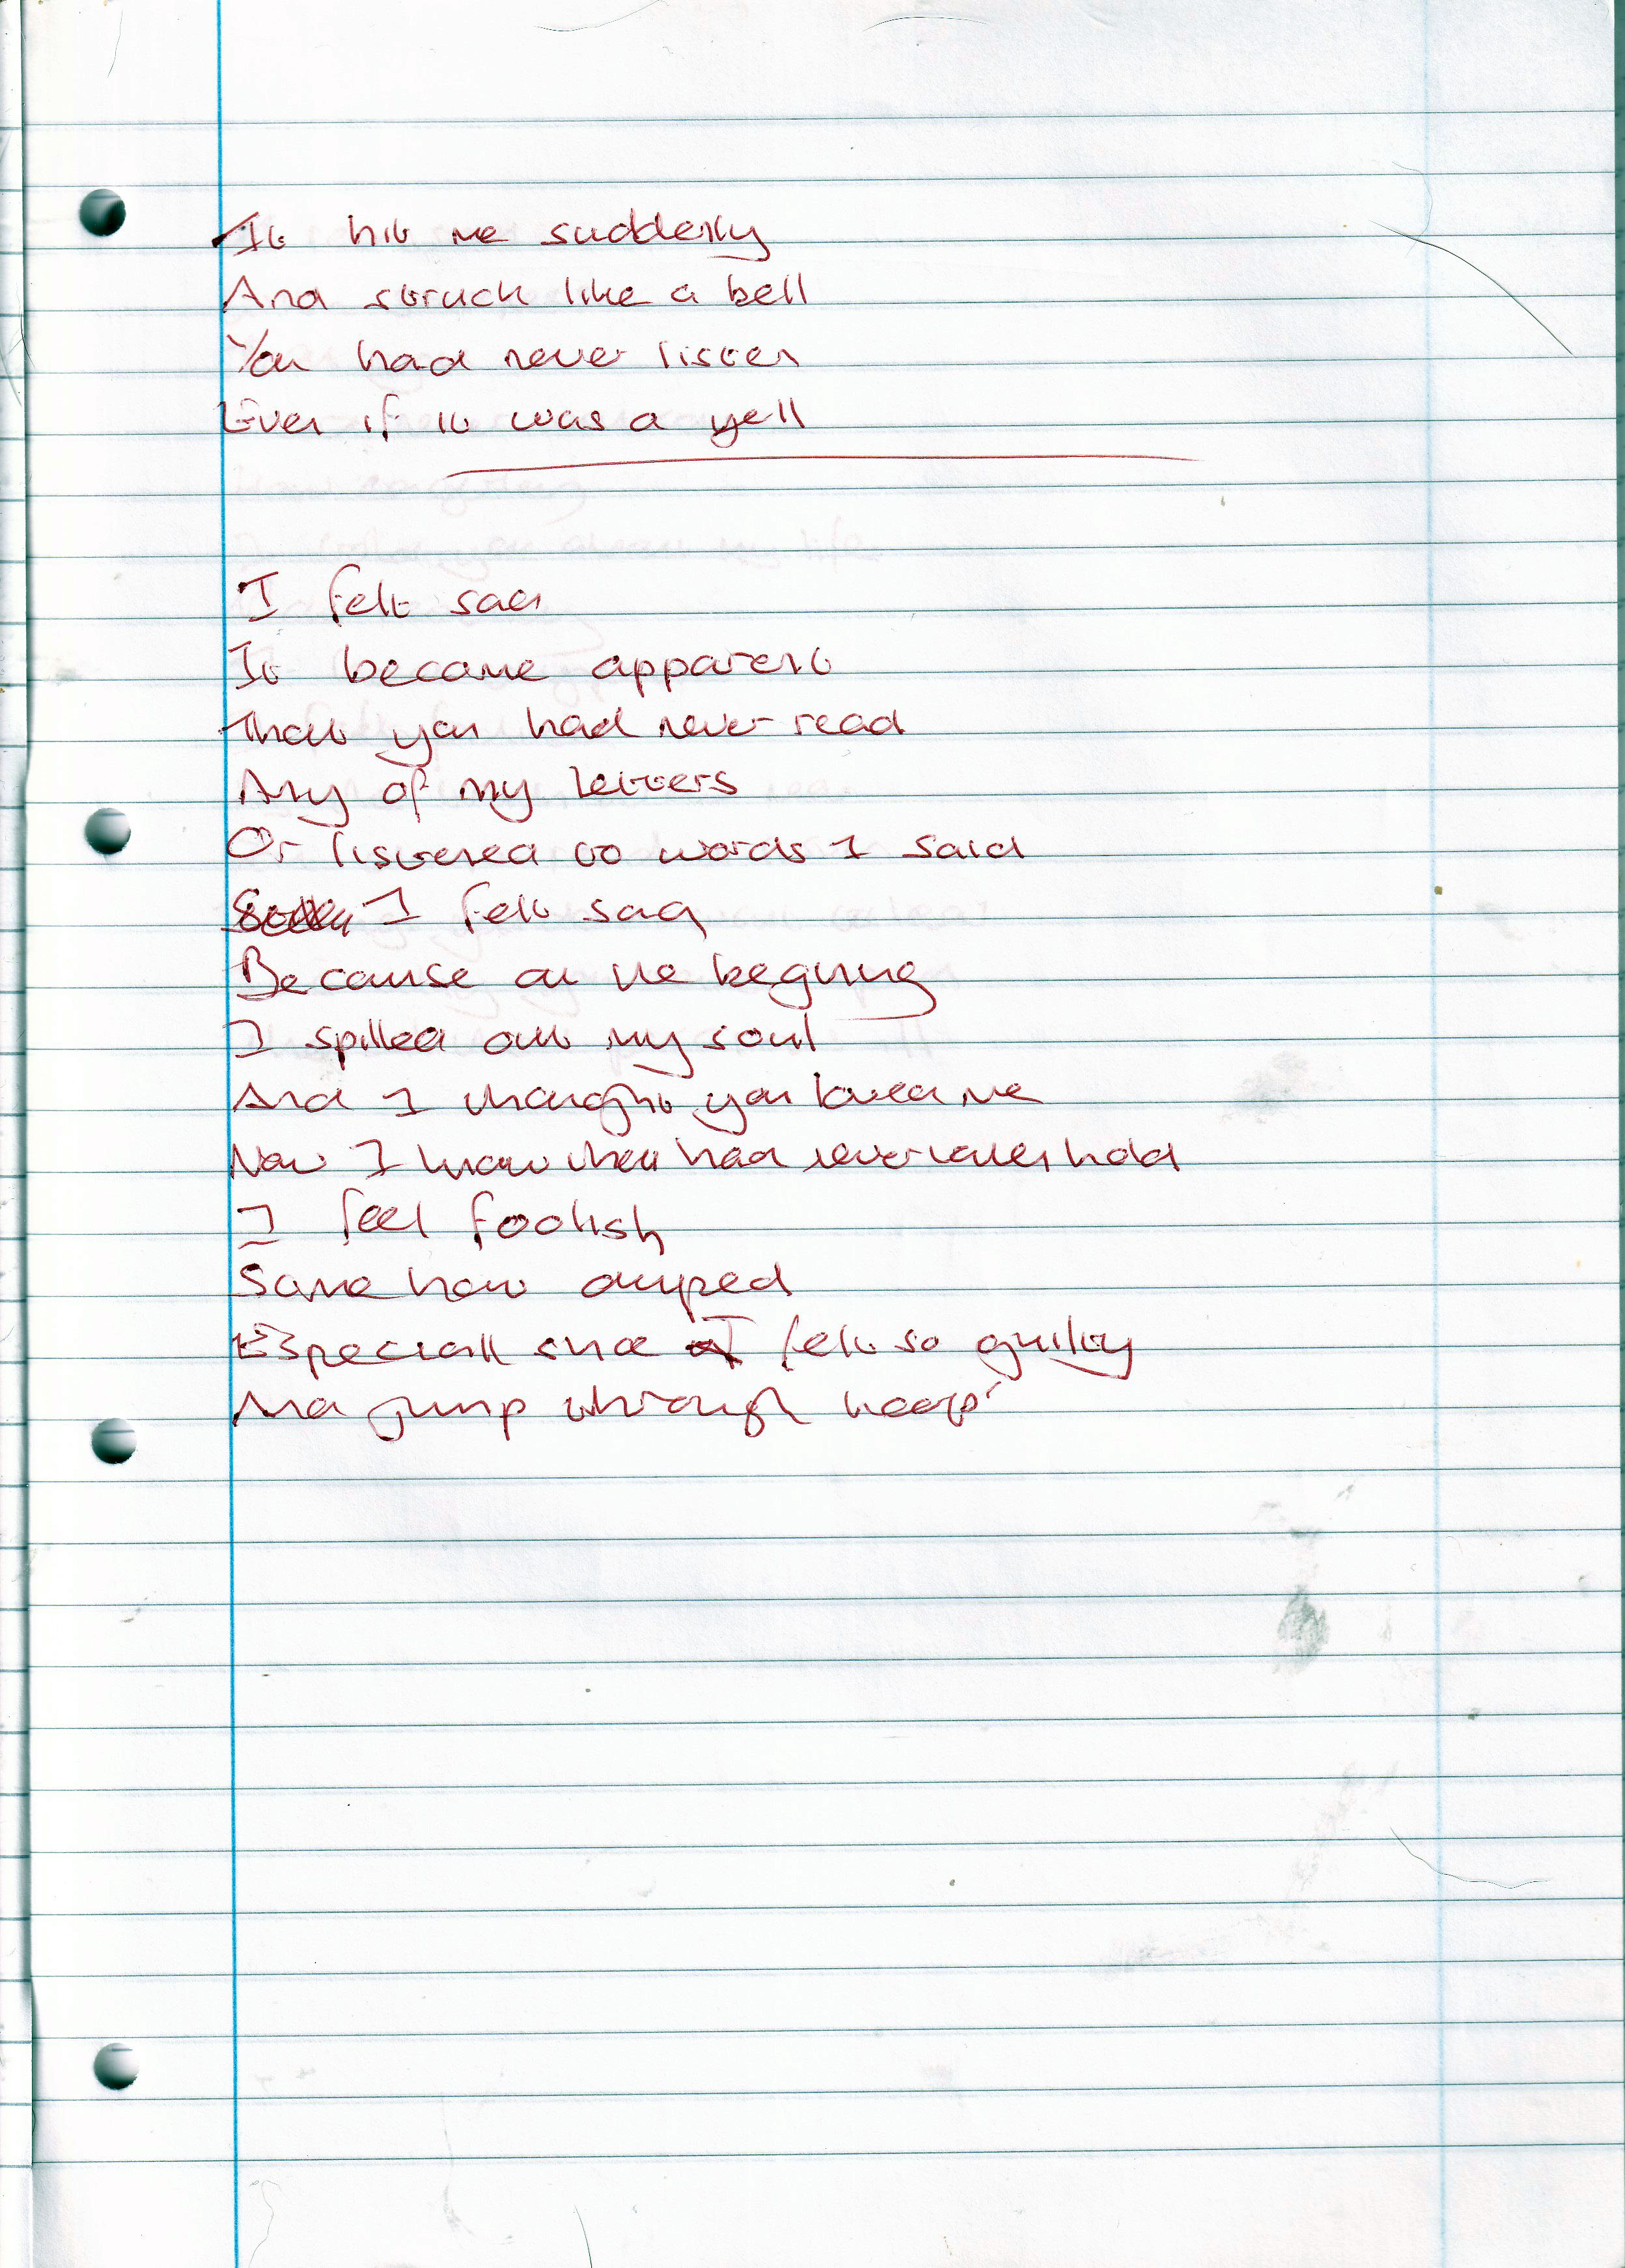 It hit me suddenly
And struck like a bell
You had never listen
Even if it was a yell
I felt sad
It became apparent
That you had never read
Any of my letters
Or listened to words I said
I felt sad
Because at the begining
I spilled out my soul
And I thought you loved me
Now I know that had never taken hold
I feel foolish
Some how duped
Especiall since I felt so guilty
And jump through hoops